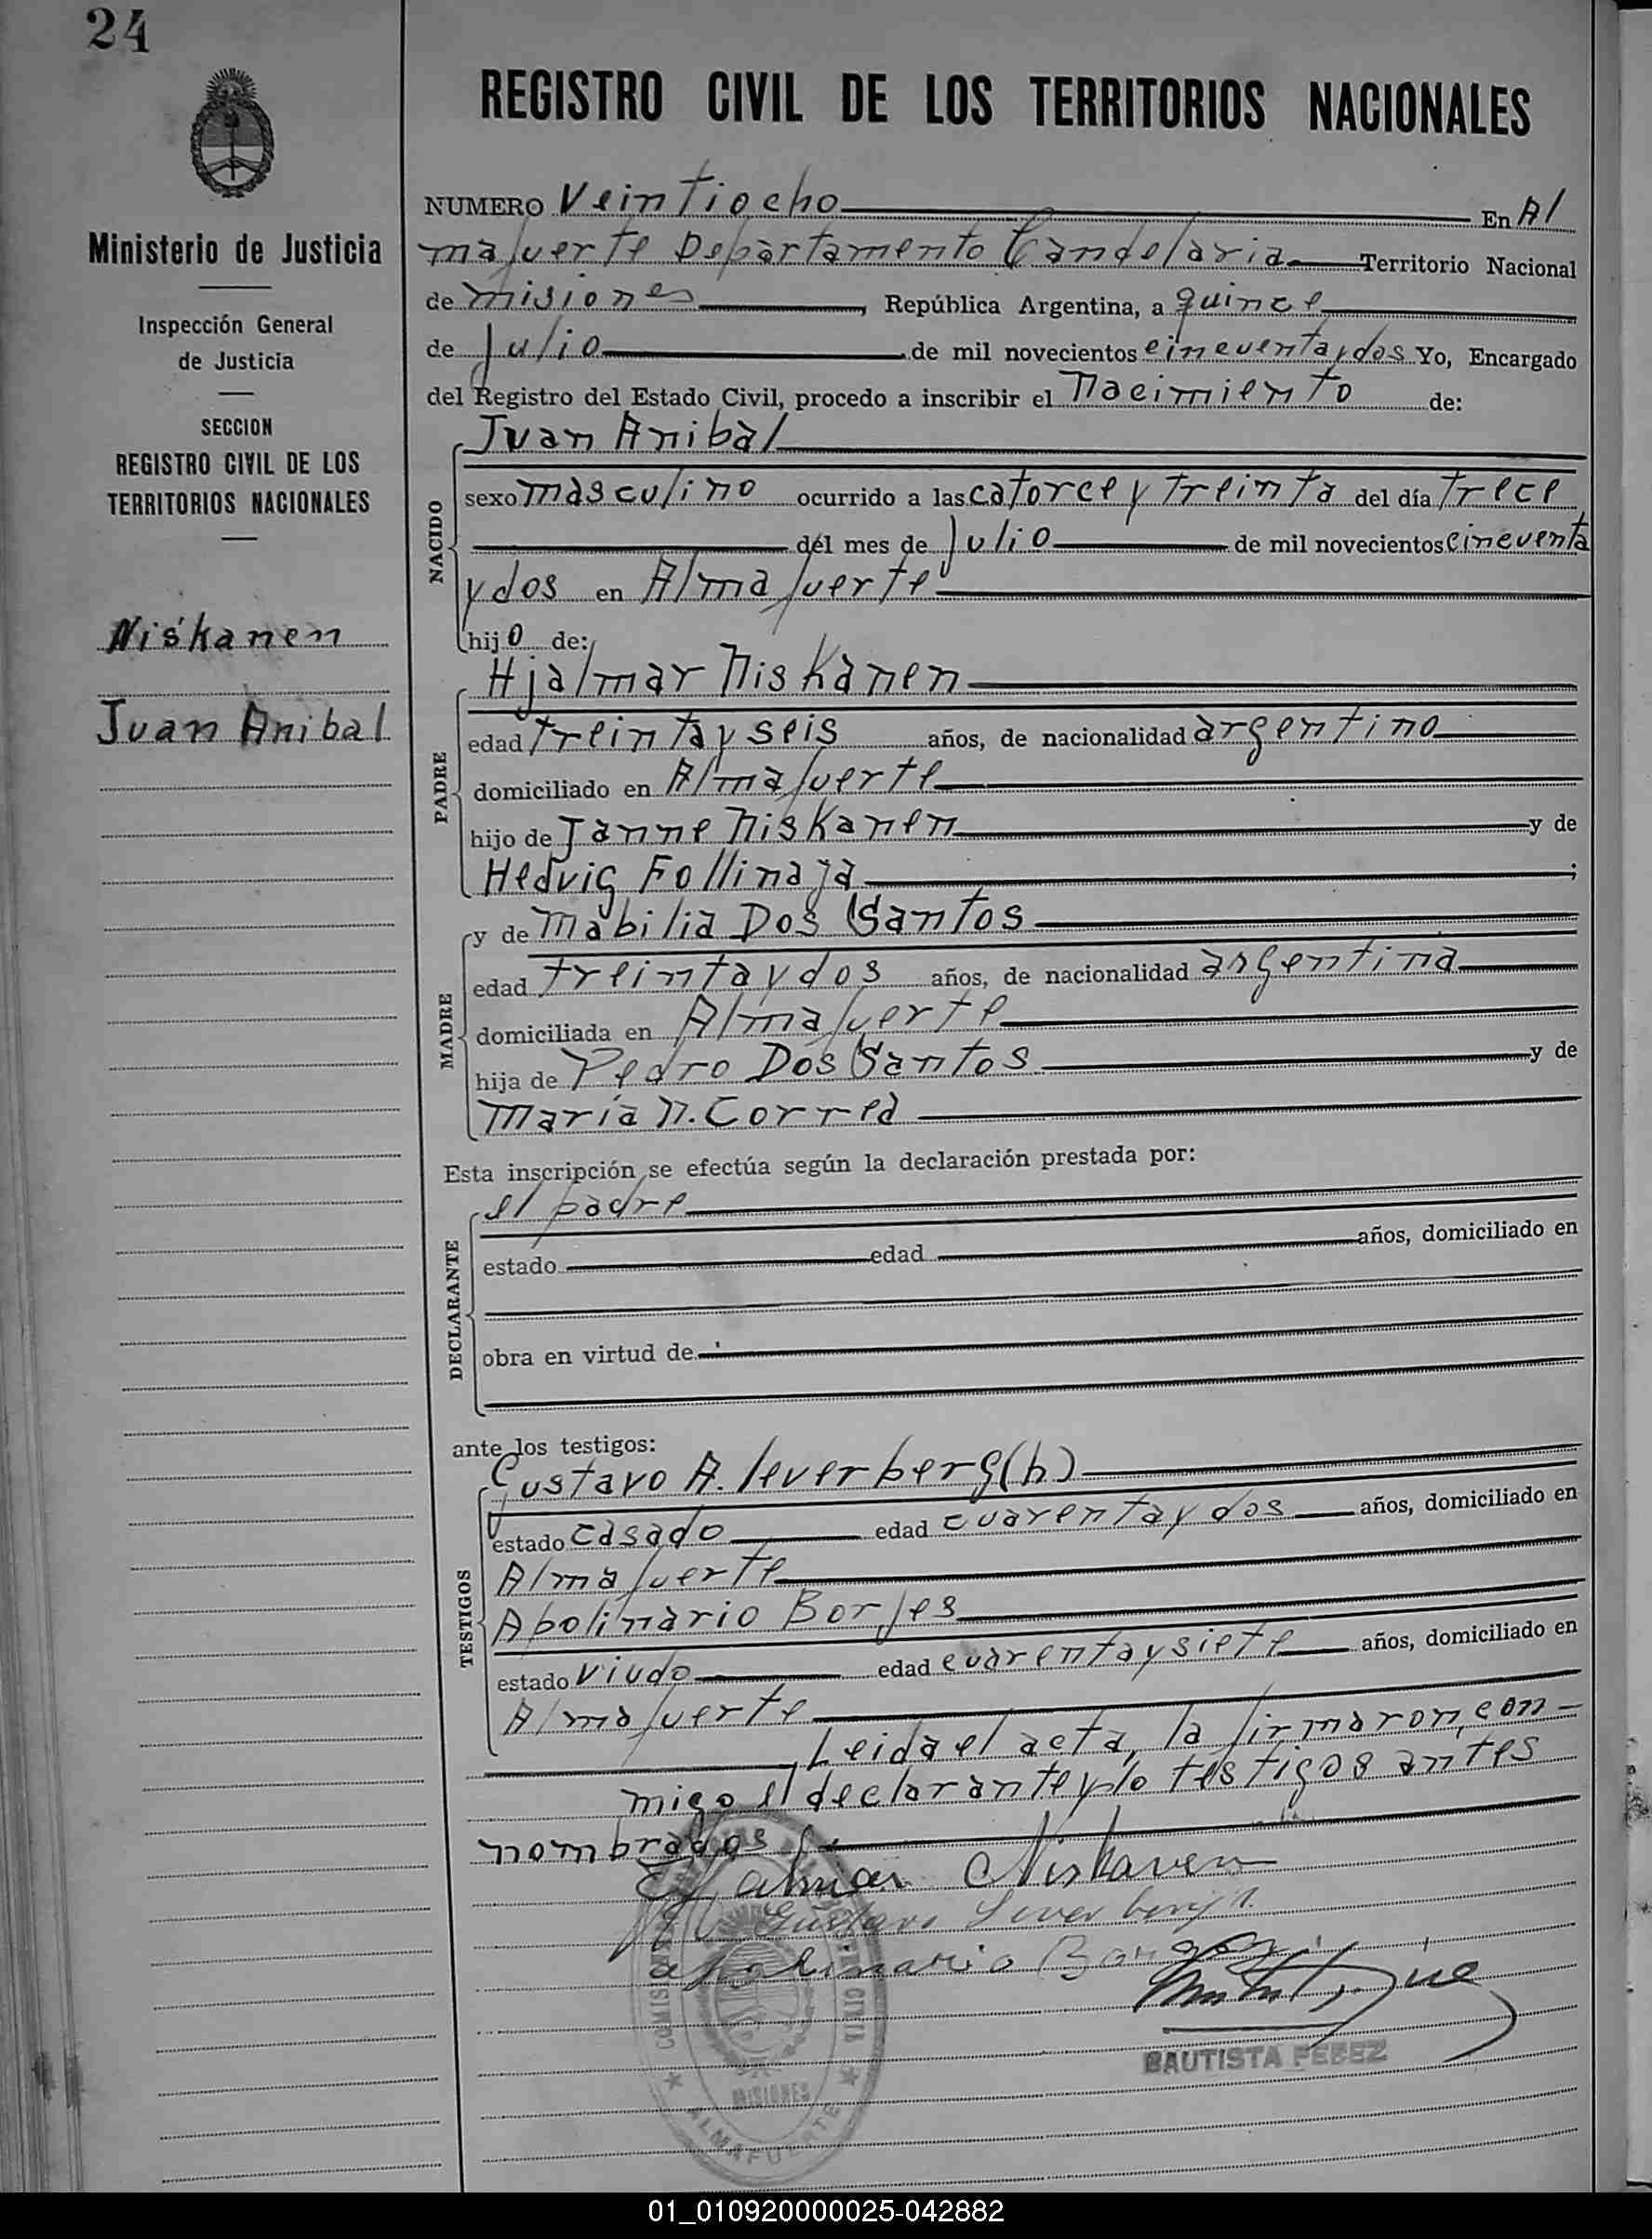 24
REGISTRO CIVIL DE LOS TERRITORIOS NACIONALES
Ministerio de Justicia
Inspección General
de Justicia
SECCION
REGISTRO CIVIL DE LOS
TERRITORIOS NACIONALES
Niskanen
Juan Anibal
NUMERO Veintiocho En Al
mafuerte Departamento Candelaria Territorio Nacional
de misiones, República Argentina, a quince
de Julio de mil novecientos cincuentaydos Yo, Encargado
del Registro del Estado Civil, procedo a inscribir el Nacimiento de:
NACIDO
Juan Anibal
sexo masculino ocurrido a las catorce y treinta del día trece
del mes de Julio de mil novecientos cincuenta
y dos en Almafuerte
hijo de:
PADRE
Hjalmar Niskanen
edad treinta y seis años, de nacionalidad argentino
domiciliado en Almafuerte
hijo de Janne Niskanen y de
Hedvig Follinaja;
MADRE
y de Mabilia Dos Santos
edad treinta y dos años, de nacionalidad argentina
domiciliada en Almafuerte
hija de Pedro Dos Santos y de
María N. Correa
Esta inscripción se efectúa según la declaración prestada por:
DECLARANTE
el padre
estado edad años, domiciliado en
obra en virtud de
ante los testigos:
TESTIGOS
Gustavo A. leverberg (h)
estado casado edad cuarenta y dos años, domiciliado en
Almafuerte
Apolinario Borjes
estado viudo edad cuarenta y siete años, domiciliado en
Almafuerte
Leida el acta, la firmaron con-
migo el declarante y lo testigos antes
nombrados
Hjalmar Niskanen
Gustavo Leverberg h.
apolinario Borges
BAUTISTA PEREZ
MISIONES
ALMAFUERTE
01_010920000025-042882